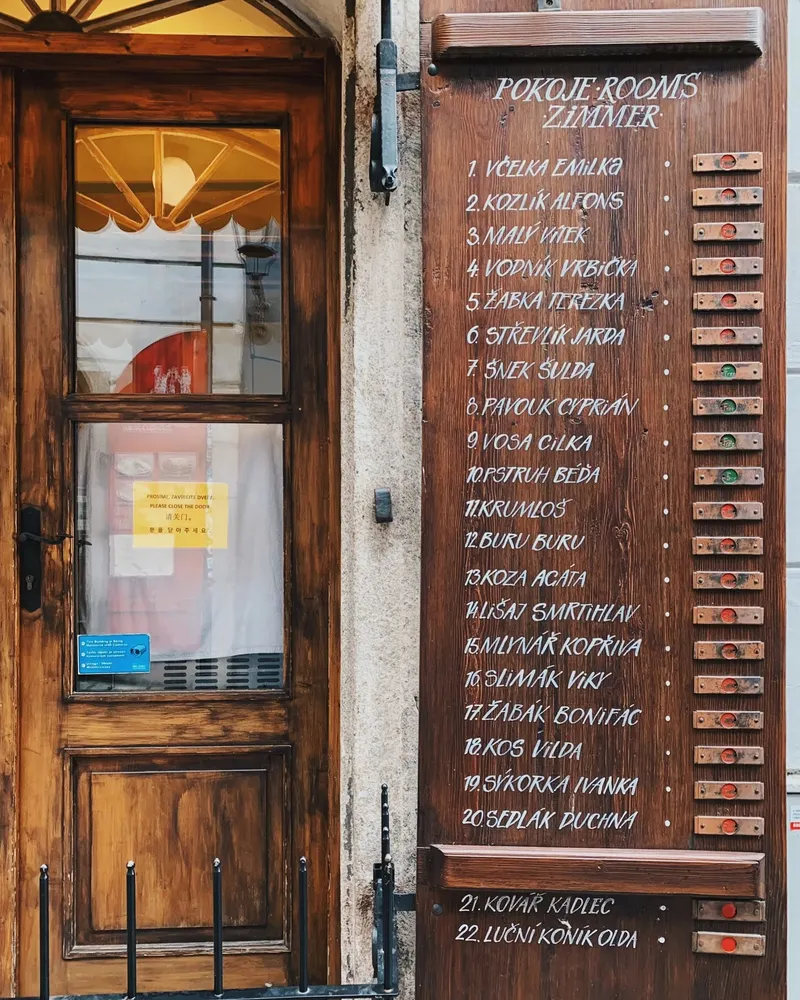 POKOJE·ROOMS
ZIMMER
1. VČELKA EMILKA
2. KOZLÍK ALFONS
3. MALÝ VÍTEK
4 VODNÍK VRBIČKA
5. ŽABKA TEREZKA
6. STŘEVLÍK JARDA
7. ŠNEK ŠULDA
8. PAVOUK CYPRIÁN
9. VOSA CILKA
10. PSTRUH BÉĎA
11. KRUMLOŠ
12. BURU BURU
13 KOZA AGÁTA
14. LIŠAJ SMRTIHLAV
15. MLYNÁŘ KOPŘIVA
16. SLIMÁK VIKY
17. ŽABÁK BONIFÁC
18. KOS VILDA
19. SÝKORKA IVANKA
20. SEDLÁK DUCHNA
21. KOVÁŘ KADLEC
22. LUČNÍ KONÍK OLDA
PROSÍME, ZAVÍREJTE DVEŘE.
PLEASE CLOSE THE DOOR
请关门。
문을 닫아주세요